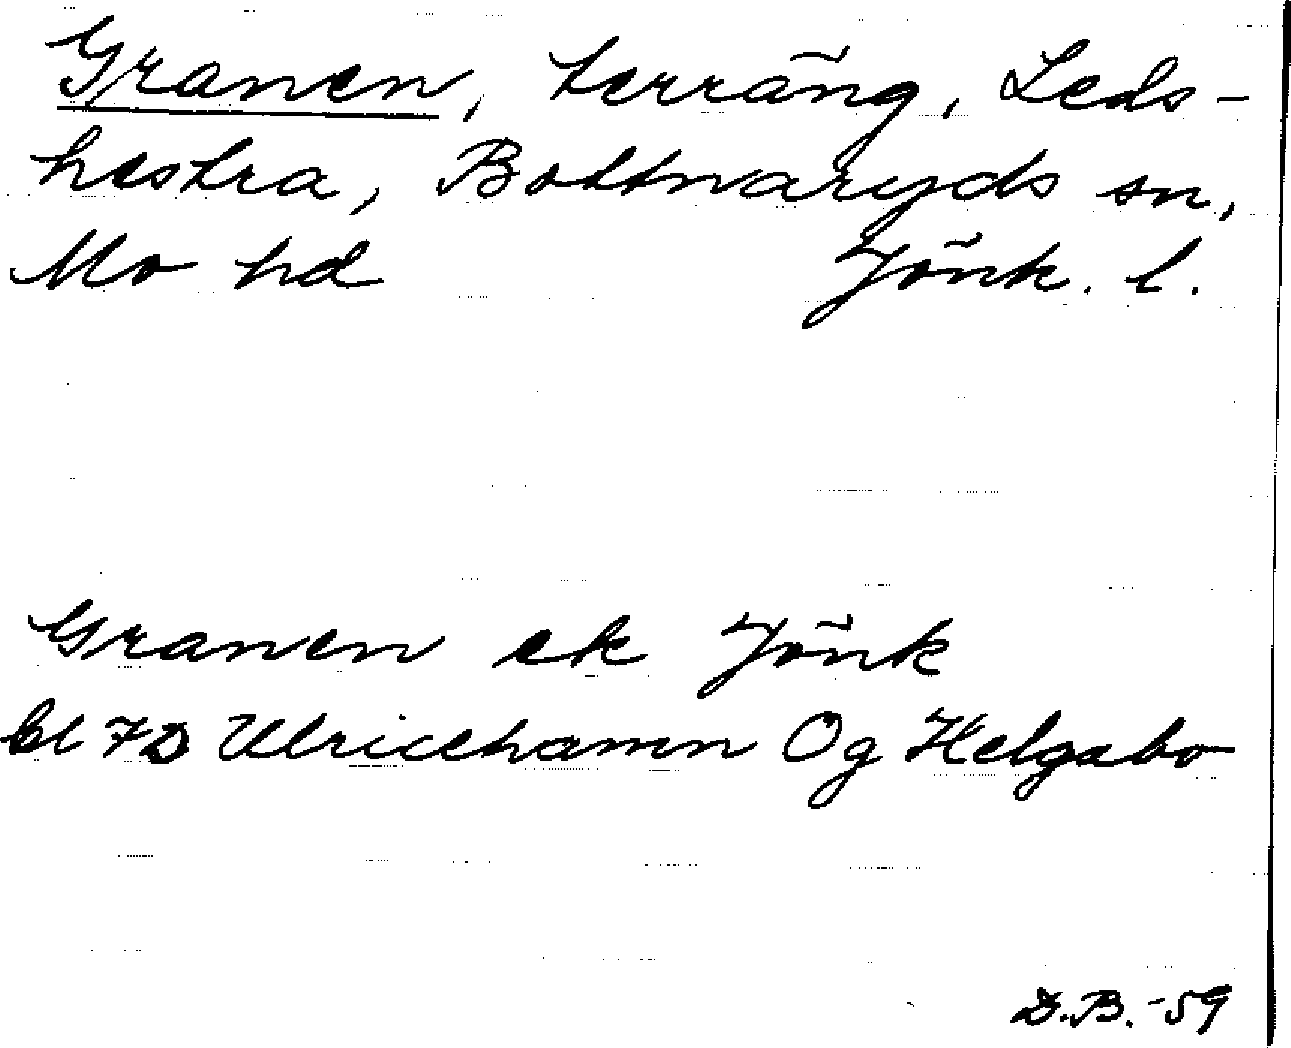 Granen, terräng, Leds-
hestra, Bottnaryds sn,
Mo hd Jönk. l.
Granen ek Jönk
bl 7D Ulricehamn Og Helgabo
D.B. -59